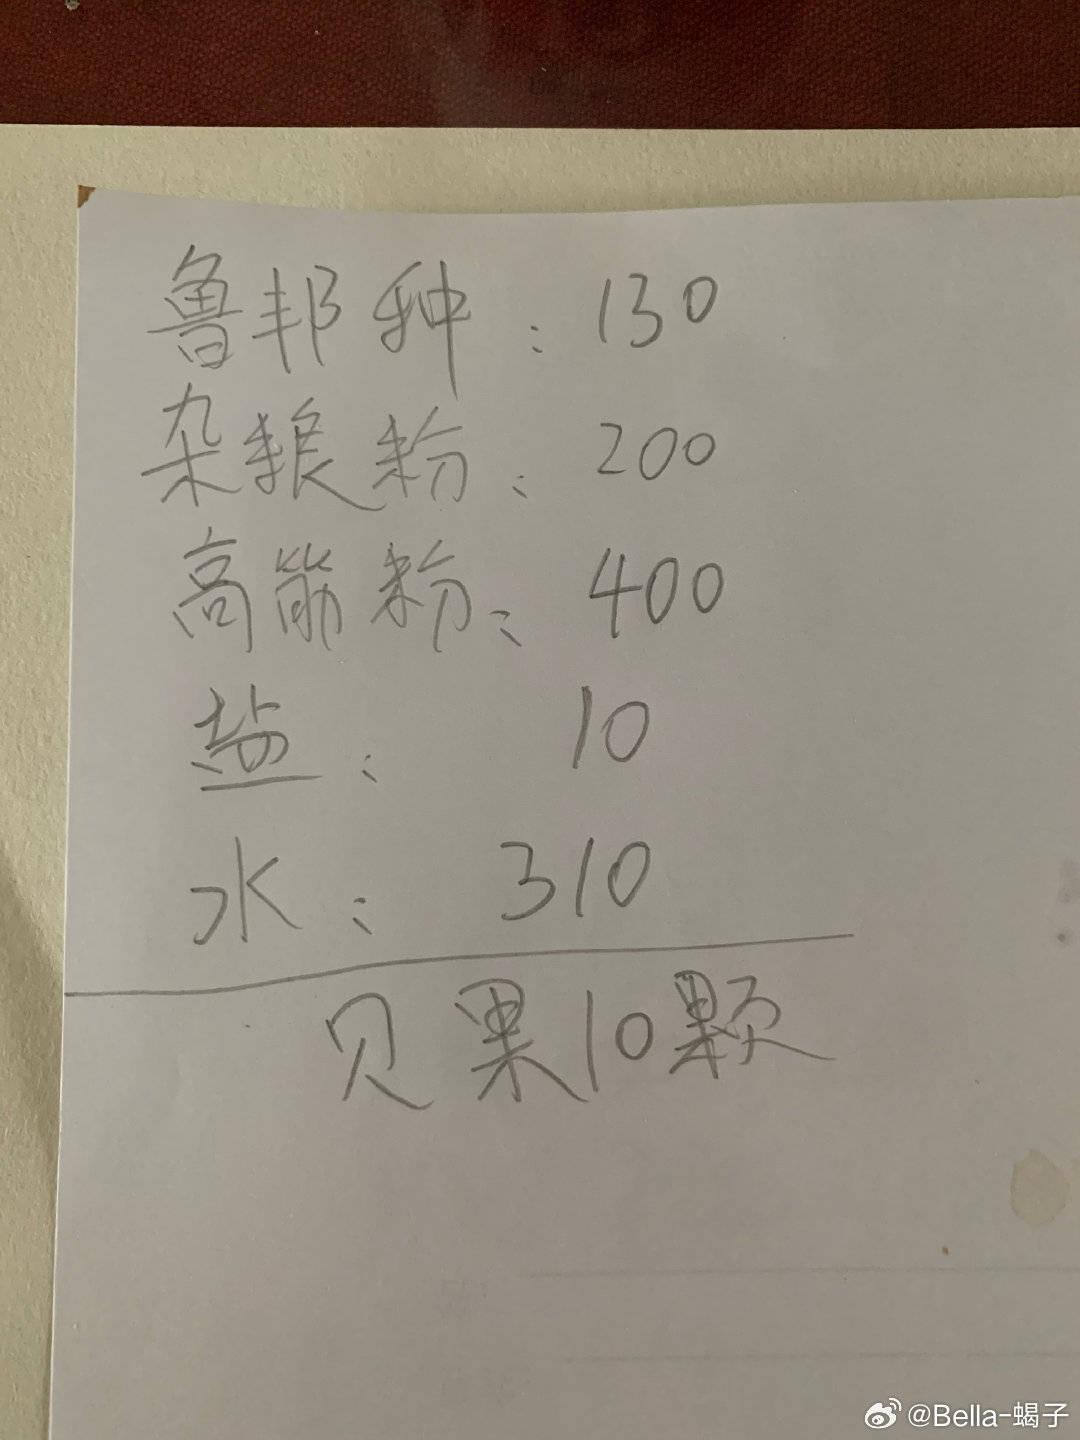 鲁邦种：130
杂粮粉：200
高筋粉：400
盐：10
水：310
贝果10颗
@Bella-蝎子